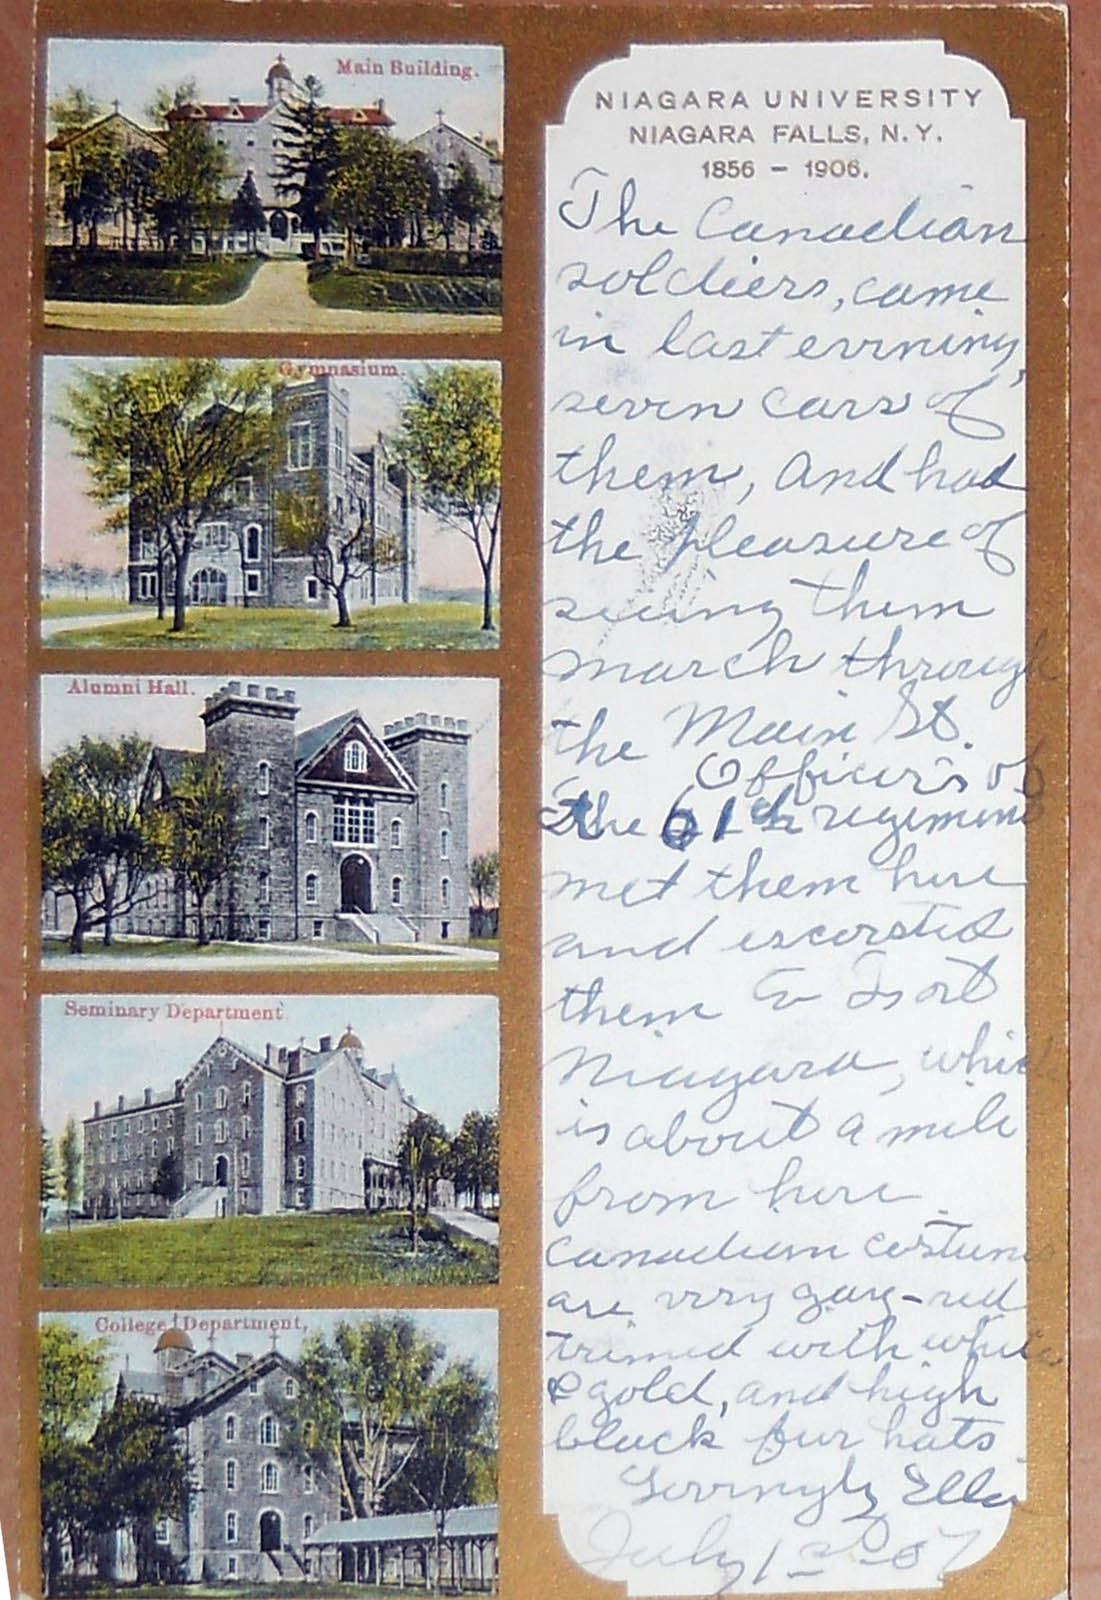 Main Building.
Gymnasium.
Alumni Hall.
Seminary Department
College Department.
NIAGARA UNIVERSITY
NIAGARA FALLS, N.Y.
1856 - 1906.
The Canadian
soldiers, came
in last evening,
seven cars of
them, and had
the pleasure of
seeing them
march through
the Main St.
Officers of
the 61th regiment
met them here
and escorted
them to Fort
Niagara, which
is about a mile
from here
Canadian costumes
are very gay - red
trimed with white
& gold, and high
black fur hats
Lovingly Ella
July 1 - 07